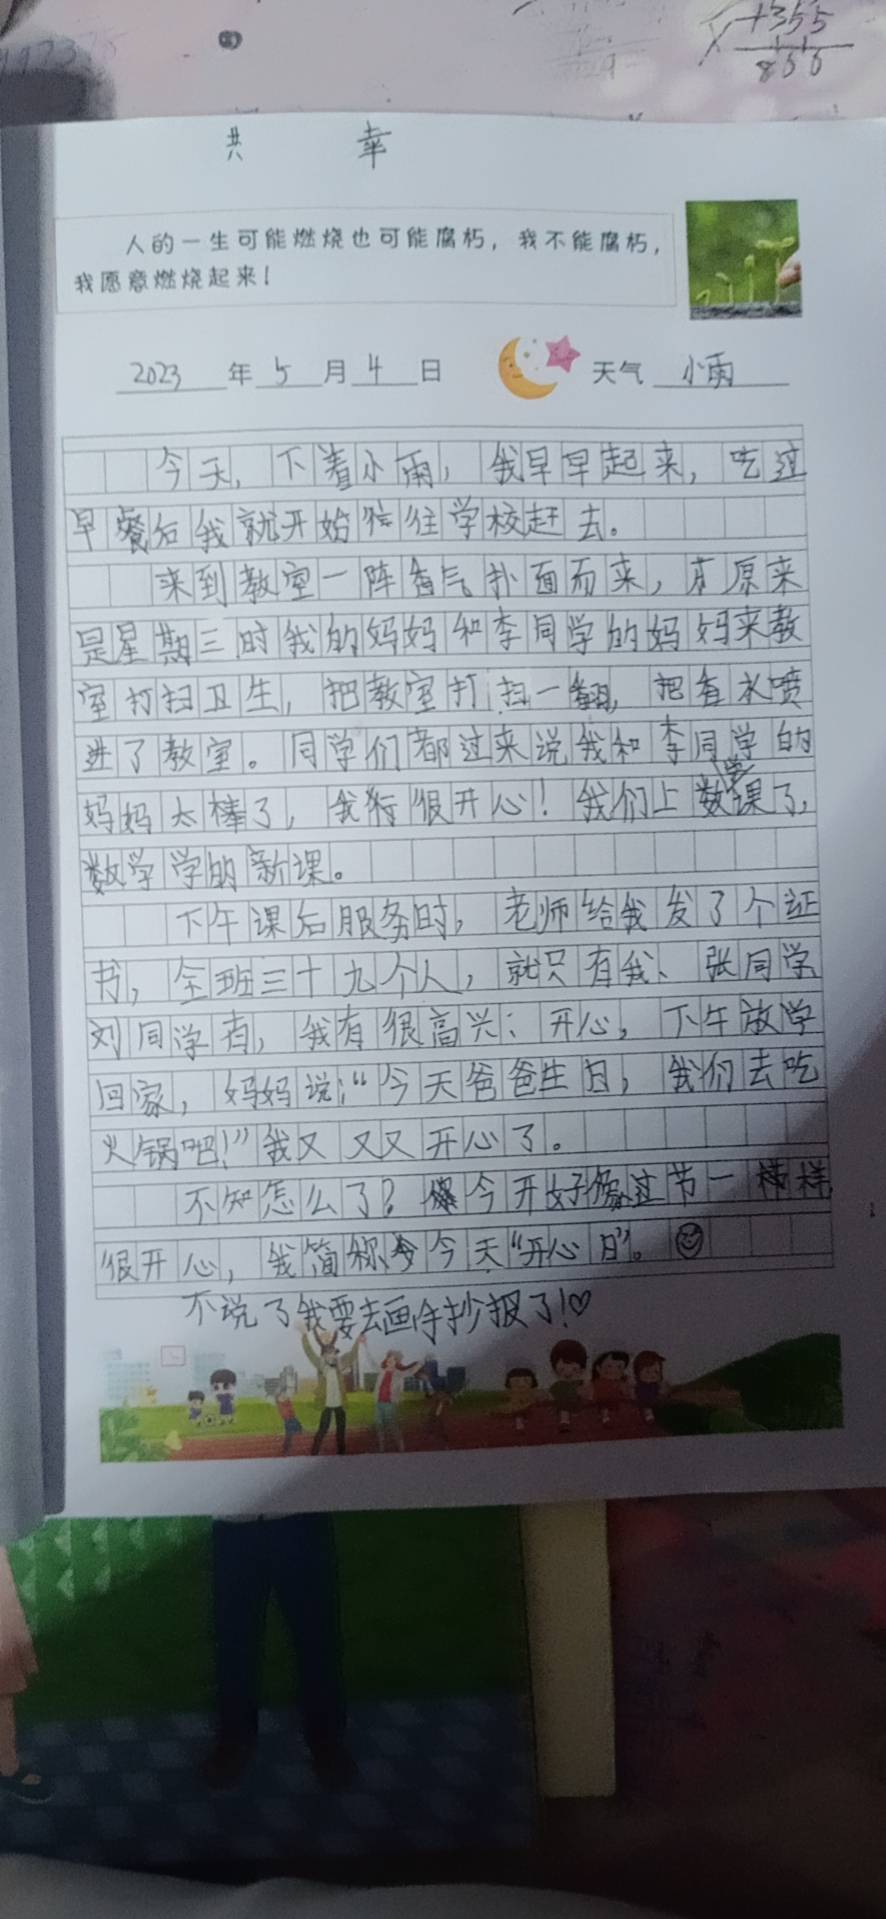 +355
855
共 幸
人的一生可能燃烧也可能腐朽，我不能腐朽，
我愿意燃烧起来！
2023 年 5 月 4 日 天气 小雨
今天，下着小雨，我早早起来，吃过
早餐后我就开始往学校赶去。
来到教室一阵香气扑面而来，原来
是星期三时我的妈妈和李同学的妈妈来教
室打扫卫生，把教室打扫一翻，把香水喷
进了教室。同学们都过来说我和李同学的
妈妈太棒了，我很开心！我们上数学课了，
数学学的新课。
下午课后服务时，老师给我发了个证
书，全班三十九个人，就只有我、张同学
刘同学有，我有很高兴；开心，下午放学
回家，妈妈说；“今天爸爸生日，我们去吃
火锅吧！”我又又又开心了。
不知怎么了？今开好像过节一样
很开心，我简称今天“开心日”。
不说了我要去画手抄报了！♡